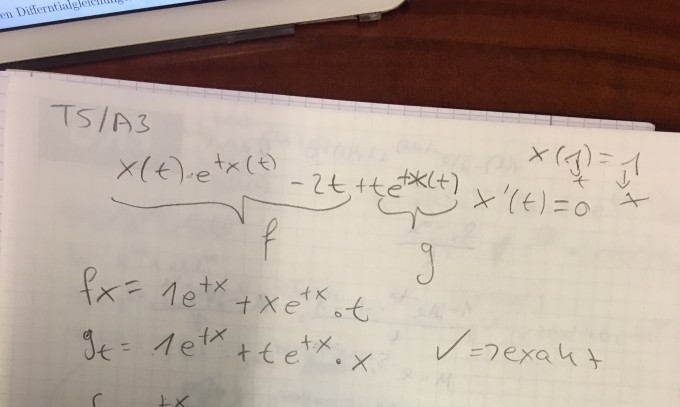 en Differntialgleichung
TS/A3
x(t)·e^{tx(t)} - 2t + te^{tx(t)} x'(t) = 0
x(1) = 1
t x
f g
fx = 1e^{tx} + xe^{tx}·t
gt = 1e^{tx} + te^{tx}·x ✓ => exakt